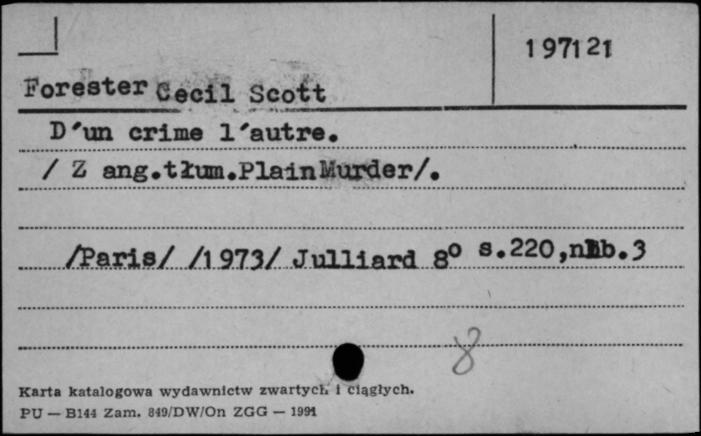 197121
Forester Cecil Scott
D'un crime l'autre.
/ Z ang.tłum.PlainMurder/.
/Paris/ /1973/ Julliard 8º s.220,nlb.3
8
Karta katalogowa wydawnictw zwartych i ciągłych.
PU — B144 Zam. 849/DW/On ZGG — 1991